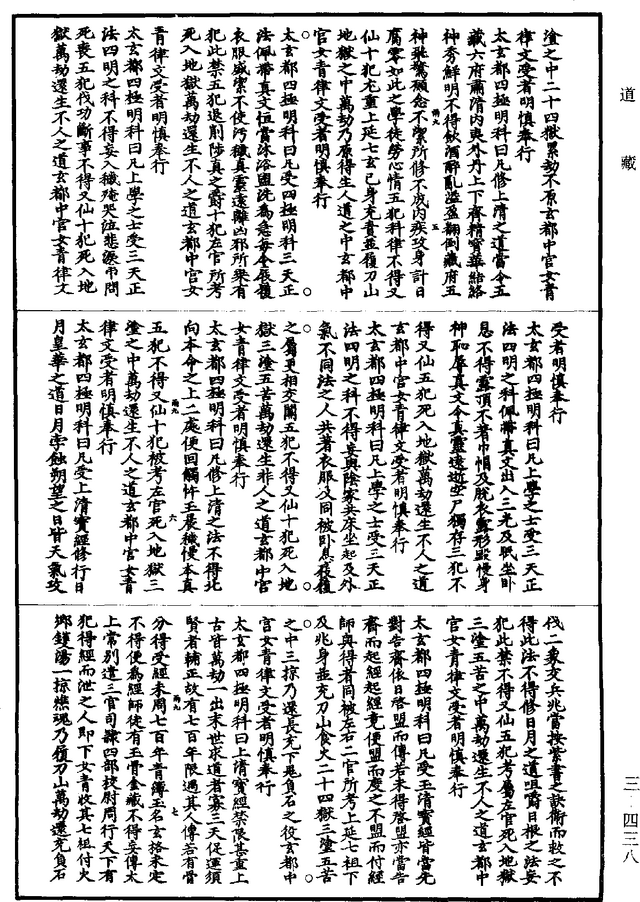 道藏
塗之中二十四獄累劫不原玄都中宮女青
律文受者明慎奉行
太玄都四極明科曰凡修上清之道當令五
藏六府肅清内與外丹上下齊精寶華結絡
神秀鮮明不得飲酒醉亂溢盈翻倒藏府五
神飛驚穢忿不潔所修不成内疾攻身計日
腐零如此之學徒勞心情五犯科律不得又
仙十犯充重上延七玄已身充責並履刀山
地獄之中萬劫乃原得生人道之中玄都中
官女青律文受者明慎奉行
太玄都四極明科曰凡受四極明科三天正
法佩帶真文恒當沐浴盥洗為急每令辰履
衣服盛潔不使污穢真靈遠離凶邪所乘有
犯此禁五犯退削陟真之爵十犯左官所考
死入地獄萬劫還生不人之道玄都中宮女
青律文受者明慎奉行
太玄都四極明科曰凡上學之士受三天正
法四明之科不得妄入穢淹哭泣悲淚弔問
死喪五犯伐功斷事不得又仙十犯死入地
獄萬劫還生不人之道玄都中宮女青律文
受者明慎奉行
太玄都四極明科曰凡上學之士受三天正
法四明之科佩帶真文出入三光及眠坐卧
息不得露頂不著巾帽及脱衣露形毀慢身
神恥辱真文令真靈遠逝空尸獨存三犯不
得又仙五犯死入地獄萬劫還生不人之道
玄都中宮女青律文受者明慎奉行
太玄都四極明科曰凡上學之士受三天正
法四明之科不得妄與陰家共床坐起及外
氣不同法之人共著衣服又同被卧息夜履
之屬更相交關五犯不得又仙十犯死入地
獄三塗五苦萬劫還生非人之道玄都中宮
女青律文受者明慎奉行
太玄都四極明科曰凡修上清之法不得北
向本命之上二處便回觸忤玉晨穢慢本真
五犯不得又仙十犯被考左官死入地獄三
塗之中萬劫還生不人之道玄都中宮女青
律文受者明慎奉行
太玄都四極明科曰凡受上清寶經修行日
月皇華之道日月孛蝕朔望之日皆天氣交
伐二象交兵兆當按紫書之訣衛而救之不
得此法不得修日月之道咀嚼日根之法妄
犯此禁不得又仙五犯考屬左官死入地獄
三塗五苦之中萬劫還生不人之道玄都中
官女青律文受者明慎奉行
太玄都四極明科曰凡受玉清寶經皆當先
對告齋依日啓盟而傳若未得啓盟亦當告
齋而起經起經竟便盟而度之不盟而付經
師與得者同被左右二官所考上延七祖下
及兆身並充刀山食火二十四獄三塗五苦
之中三掠乃還長充下鬼負石之役玄都中
官女青律文受者明慎奉行
太玄都四極明科曰上清寶經禁限甚重上
古皆萬劫一出末世求道者寡三天促運須
賢者輔正故有七百年限過其人傳若有骨
分得受經未周七百年青籙玉名玄格未定
不得便為經師徒有玉骨金藏不得妄傳太
上常別遣三官司隷四部校尉周行天下有
犯得經而泄之人即下女青收其七祖付火
鄉鑊湯一掠燋魂乃履刀山萬劫還充負石
三-四三八